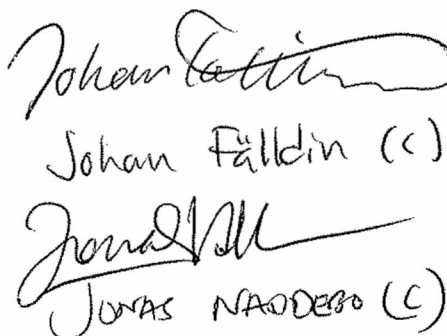 Johan Fälldin
Johan Fälldin (C)
Jonas
JONAS NADDEBO (C)